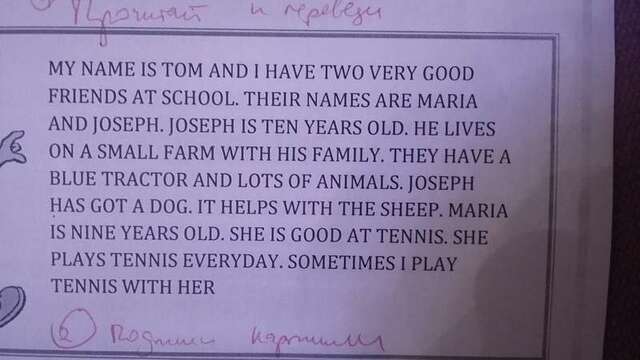 Прочитай и переведи
MY NAME IS TOM AND I HAVE TWO VERY GOOD
FRIENDS AT SCHOOL. THEIR NAMES ARE MARIA
AND JOSEPH. JOSEPH IS TEN YEARS OLD. HE LIVES
ON A SMALL FARM WITH HIS FAMILY. THEY HAVE A
BLUE TRACTOR AND LOTS OF ANIMALS. JOSEPH
HAS GOT A DOG. IT HELPS WITH THE SHEEP. MARIA
IS NINE YEARS OLD. SHE IS GOOD AT TENNIS. SHE
PLAYS TENNIS EVERYDAY. SOMETIMES I PLAY
TENNIS WITH HER
2 Подпиши картинки